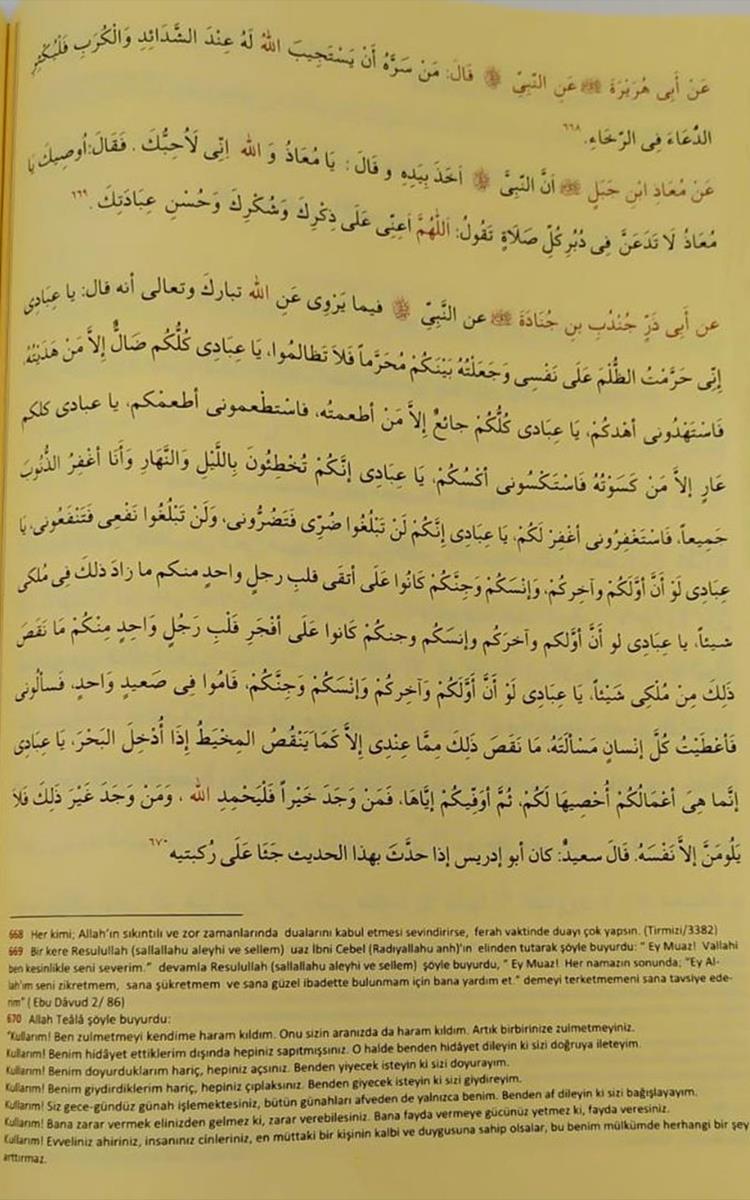 عَنْ أَبِى هُرَيْرَةَ ﷺ عَنِ النَّبِىِّ ﷺ قَالَ: مَنْ سَرَّهُ أَنْ يَسْتَجِيبَ اللهُ لَهُ عِنْدَ الشَّدَائِدِ وَالْكُرَبِ فَلْيُكْثِرِ
الدُّعَاءَ فِى الرَّخَاءِ.٦٦٨
عَنْ مُعَاذِ ابْنِ جَبَلٍ أَنَّ النَّبِىَّ ﷺ اَخَذَ بِيَدِهِ و قَالَ: يَا مُعَاذُ وَ الله اِنِّى لَاُحِبُّكَ . فَقَالَ:اُوصِيكَ يَا
مُعَاذُ لَا تَدَعَنَّ فِى دُبُرِ كُلِّ صَلَاةٍ تَقُولُ: اَللّٰهُمَّ اَعِنِّى عَلَى ذِكْرِكَ وَشُكْرِكَ وَحُسْنِ عِبَادَتِكَ .٦٦٩
عن أَبِى ذَرٍّ جُنْدُبِ بنِ جُنَادَةَ عن النَّبِىِّ ﷺ فيما يَرْوِى عَنِ الله تباركَ وتعالى أنه قال: يا عِبَادِى
إنِّى حَرَّمْتُ الظُّلْمَ عَلَى نَفْسِى وَجَعَلْتُهُ بَيْنَكُمْ مُحَرَّماً فَلاَ تَظَالمُوا، يَا عِبَادِى كُلُّكُم ضَالٌّ إلاَّ مَنْ هَدَيْتُهُ،
فَاسْتَهْدُونى أهْدِكُمْ، يَا عِبَادِى كُلُّكُمْ جائعٌ إلاَّ مَنْ أطعمتُه، فاستْطعمونى أطعمْكم، يا عبادى كلكم
عَارٍ إلاَّ مَن كَسَوْتُهُ فَاسْتَكْسُونى أكْسُكُمْ، يَا عِبَادِى إنَّكُمْ تُخْطِئُونَ بِاللَّيْلِ وَالنَّهَارِ وَأَنَا أغْفِرُ الذُّنُوبَ
جَمِيعاً، فَاسْتَغْفِرُونى أغْفِرْ لَكُمْ، يَا عِبَادِى إنَّكُمْ لَنْ تَبْلُغُوا ضُرِّى فَتَضُرُّونى، وَلَنْ تَبْلُغُوا نَفْعِى فَتَنْفَعُونى، يَا
عِبَادِى لَوْ أَنَّ أَوَّلَكُمْ وآخِركُمْ، وَإنْسَكُمْ وَجِنَّكُمْ كَانُوا عَلَى أتقَى قلبِ رجلٍ واحدٍ منكم ما زادَ ذلكَ فِى مُلكى
شيئاً، يا عِبَادِى لو أنَّ أوَّلكم وآخرَكُم وإنسَكُم وجنكُمْ كانوا عَلَى أفْجَرِ قَلْبِ رَجُلٍ وَاحِدٍ مِنْكُمْ مَا نَقَصَ
ذَلِكَ مِنْ مُلْكِى شَيْئاً، يَا عِبَادِى لَوْ أنَّ أَوَّلَكُمْ وَآخِرِكُمْ وَإنْسَكُمْ وَجِنَّكُمْ، قَامُوا فِى صَعيدٍ وَاحدٍ، فَسألُونى
فَأَعْطَيْتُ كُلَّ إنسانٍ مَسْألَتَهُ، مَا نَقَصَ ذَلِكَ مِمَّا عِنْدِى إلاَّ كَمَا يَنْقُصُ المِخْيَطُ إذَا أُدْخِلَ البَحْرَ، يَا عِبَادِى
إنَّما هِىَ أعْمَالُكُمْ أُحْصِيهَا لَكُمْ، ثُمَّ أوَفِّيكُمْ إيَّاهَا، فَمَنْ وَجَدَ خَيْراً فَلْيَحْمِدِ الله ، وَمَنْ وَجَدَ غَيْرَ ذَلِكَ فَلاَ
يَلُومَنَّ إلاَّ نَفْسَهُ. قَالَ سعيدٌ: كان أبو إدريس إذا حدَّثَ بهذا الحديث جَثَا عَلَى رُكبتيه ٦٧٠
668 Her kimi; Allah'ın sıkıntılı ve zor zamanlarında dualarını kabul etmesi sevindirirse, ferah vaktinde duayı çok yapsın. (Tirmizi/3382)
669 Bir kere Resulullah (sallallahu aleyhi ve sellem) uaz İbni Cebel (Radıyallahu anh)'ın elinden tutarak şöyle buyurdu: " Ey Muaz! Vallahi
ben kesinlikle seni severim." devamla Resulullah (sallallahu aleyhi ve sellem) şöyle buyurdu, " Ey Muaz! Her namazın sonunda; "Ey Al-
lah'ım seni zikretmem, sana şükretmem ve sana güzel ibadette bulunmam için bana yardım et." demeyi terketmemeni sana tavsiye ede-
rim" ( Ebu Dâvud 2/ 86)
670 Allah Teâlâ şöyle buyurdu:
"Kullarım! Ben zulmetmeyi kendime haram kıldım. Onu sizin aranızda da haram kıldım. Artık birbirinize zulmetmeyiniz.
Kullarım! Benim hidâyet ettiklerim dışında hepiniz sapıtmışsınız. O halde benden hidâyet dileyin ki sizi doğruya ileteyim.
Kullarım! Benim doyurduklarım hariç, hepiniz açsınız. Benden yiyecek isteyin ki sizi doyurayım.
Kullarım! Benim giydirdiklerim hariç, hepiniz çıplaksınız. Benden giyecek isteyin ki sizi giydireyim.
Kullarım! Siz gece-gündüz günah işlemektesiniz, bütün günahları afveden de yalnızca benim. Benden af dileyin ki sizi bağışlayayım.
Kullarım! Bana zarar vermek elinizden gelmez ki, zarar verebilesiniz. Bana fayda vermeye gücünüz yetmez ki, fayda veresiniz.
Kullarım! Evveliniz ahiriniz, insanınız cinleriniz, en müttaki bir kişinin kalbi ve duygusuna sahip olsalar, bu benim mülkümde herhangi bir şey
arttırmaz.